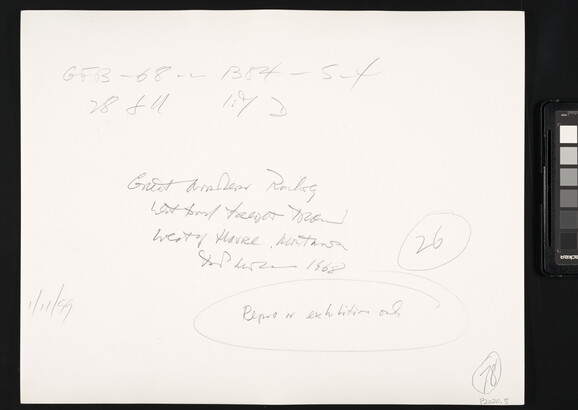 GFB-68-- B84-5-4
28 f11 D
Great Northern Railway
West bound freight train
West of Havre, Montana
1968
26
1/11/99
Repro or exhibition only
78
P2020.5